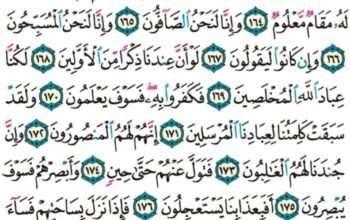 لَهُۥ مَقَامٌ مَّعْلُومٌ ١٦٤ وَإِنَّا لَنَحْنُ ٱلصَّآفُّونَ ١٦٥ وَإِنَّا لَنَحْنُ ٱلْمُسَبِّحُونَ
١٦٦ وَإِن كَانُوا۟ لَيَقُولُونَ ١٦٧ لَوْ أَنَّ عِندَنَا ذِكْرًا مِّنَ ٱلْأَوَّلِينَ ١٦٨ لَكُنَّا
عِبَادَ ٱللَّهِ ٱلْمُخْلَصِينَ ١٦٩ فَكَفَرُوا۟ بِهِۦ فَسَوْفَ يَعْلَمُونَ ١٧٠ وَلَقَدْ
سَبَقَتْ كَلِمَتُنَا لِعِبَادِنَا ٱلْمُرْسَلِينَ ١٧١ إِنَّهُمْ لَهُمُ ٱلْمَنصُورُونَ ١٧٢ وَإِنَّ
جُندَنَا لَهُمُ ٱلْغَٰلِبُونَ ١٧٣ فَتَوَلَّ عَنْهُمْ حَتَّىٰ حِينٍ ١٧٤ وَأَبْصِرْهُمْ فَسَوْفَ
يُبْصِرُونَ ١٧٥ أَفَبِعَذَابِنَا يَسْتَعْجِلُونَ ١٧٦ فَإِذَا نَزَلَ بِسَاحَتِهِمْ فَسَآءَ